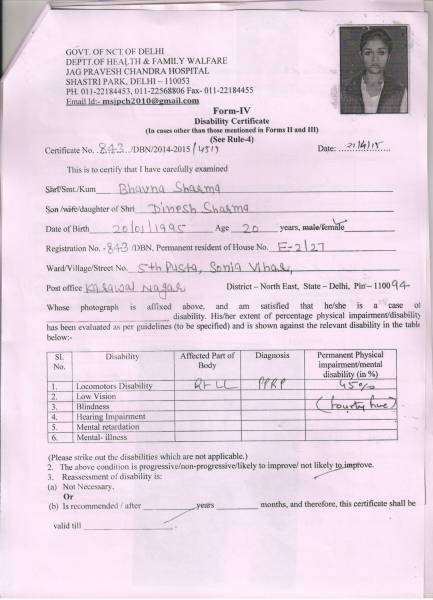 GOVT. OF NCT OF DELHI
DEPTT.OF HEALTH & FAMILY WALFARE
JAG PRAVESH CHANDRA HOSPITAL
SHASTRI PARK, DELHI – 110053
PH. 011-22184453, 011-22568806 Fax- 011-22184455
Email Id:- msjpch2010@gmail.com
Form-IV
Disability Certificate
(In cases other than those mentioned in Forms II and III)
(See Rule-4)
Certificate No. 843 /DBN/2014-2015/4519 Date: 21/4/15
This is to certify that I have carefully examined
Shri/Smt./Kum Bhavna Sharma
Son /wife/daughter of Shri Dinesh Sharma
Date of Birth 20/01/1995 Age 20 years, male/female
Registration No. -843 /DBN. Permanent resident of House No. E-2/27
Ward/Village/Street No. 5th Pusta, Sonia Vihar,
Post office Karawal Nagar District – North East, State – Delhi, Pin – 110094-
Whose photograph is affixed above, and am satisfied that he/she is a case of
disability. His/her extent of percentage physical impairment/disability
has been evaluated as per guidelines (to be specified) and is shown against the relevant disability in the table
below:-
Sl. No. Disability Affected Part of Body Diagnosis Permanent Physical impairment/mental disability (in %)
1. Locomotors Disability Rt LL PPRP 45%
2. Low Vision
3. Blindness (fourty five)
4. Hearing Impairment
5. Mental retardation
6. Mental- illness
(Please strike out the disabilities which are not applicable.)
2. The above condition is progressive/non-progressive/likely to improve/ not likely to improve.
3. Reassessment of disability is:
(a) Not Necessary.
Or
(b) Is recommended / after years months, and therefore, this certificate shall be
valid till